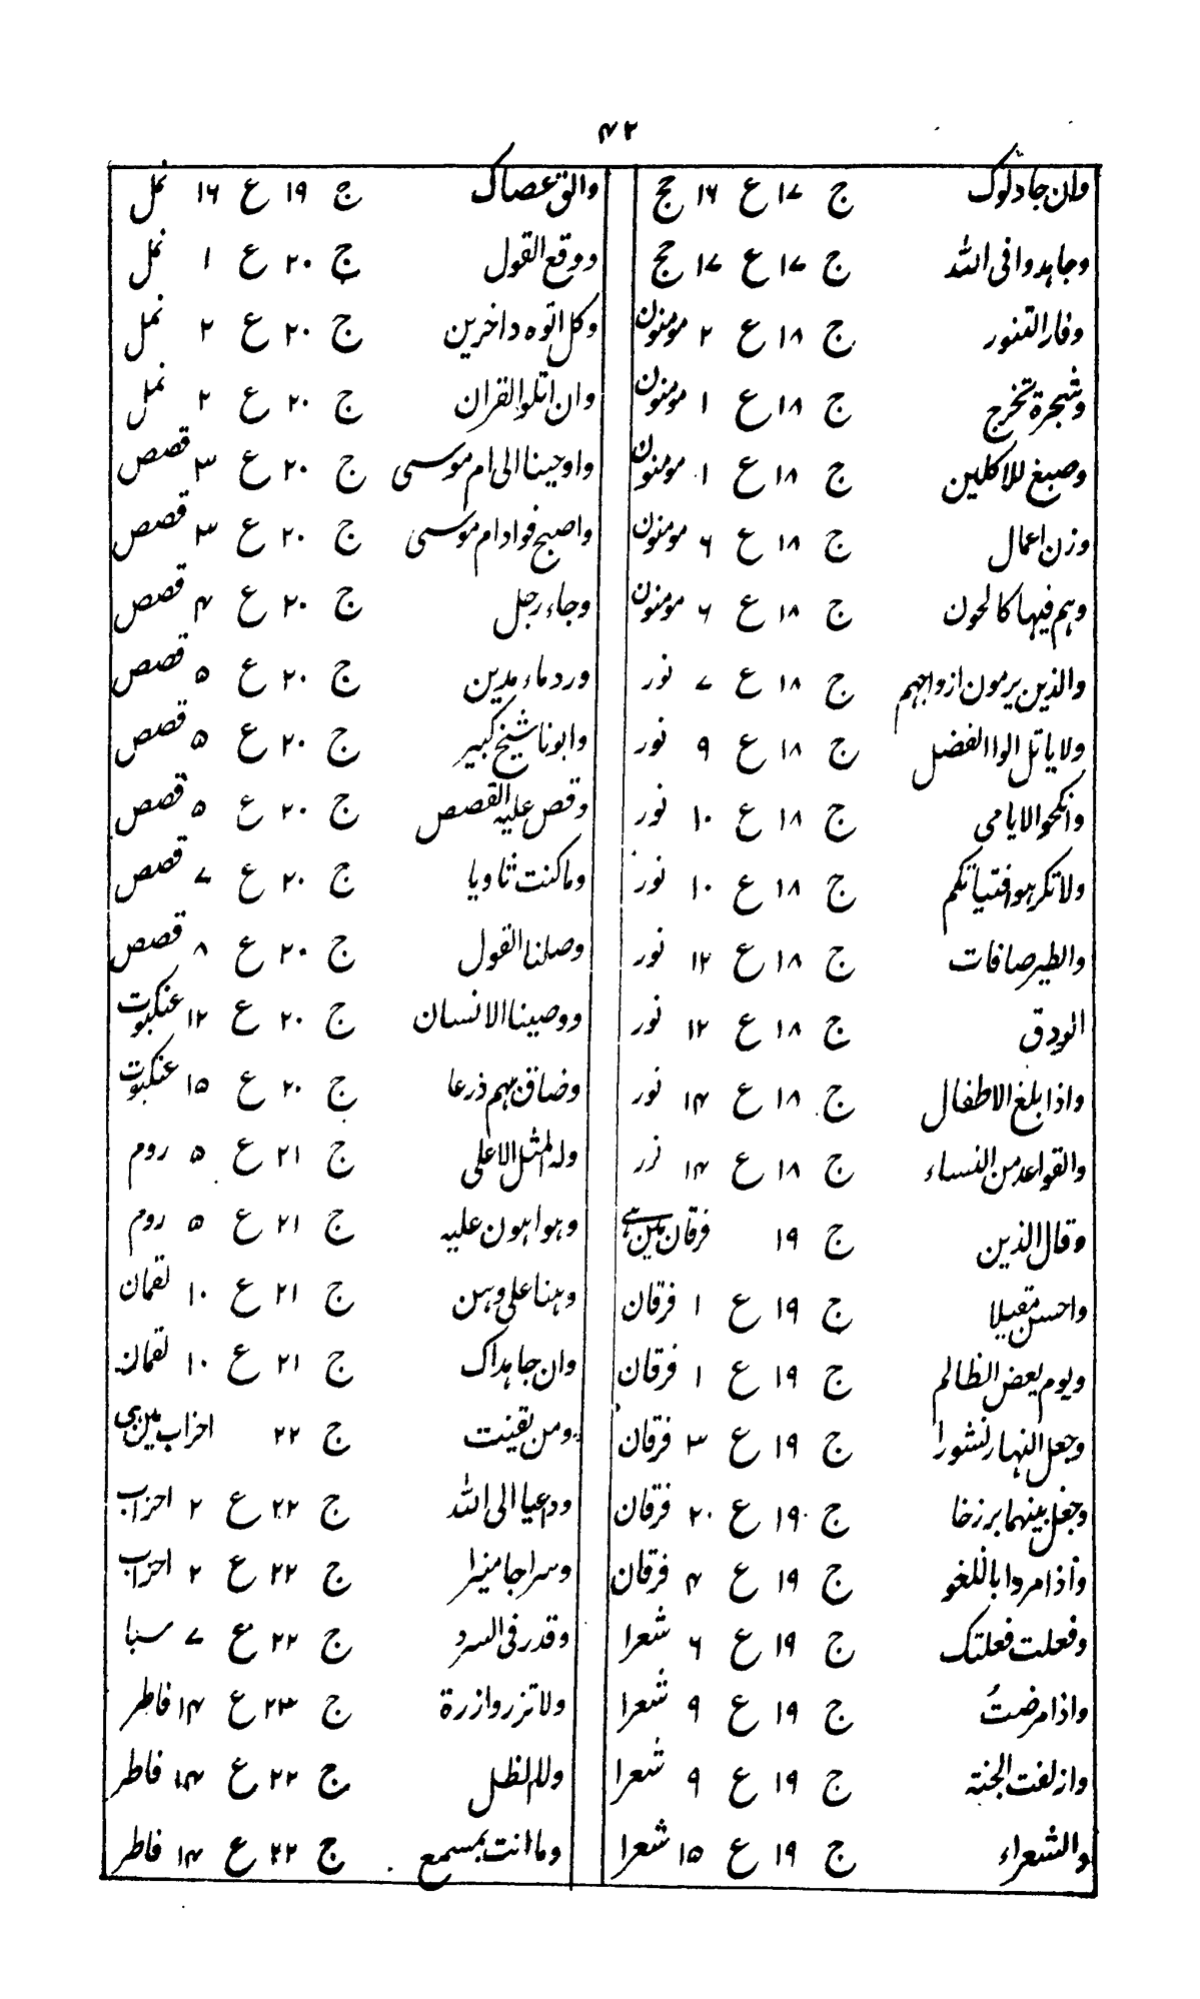 ۴۲
وان جادلوک ج ۱۷ ع ۱۶ حج
وجاہدوا فی اللہ ج ۱۷ ع ۱۷ حج
وفار التنور ج ۱۸ ع ۲ مومنون
وشجرۃ تخرج ج ۱۸ ع ۱ مومنون
وصبغ للاکلین ج ۱۸ ع ۱ مومنون
وزن اعمال ج ۱۸ ع ۶ مومنون
وہم فیہا کالحون ج ۱۸ ع ۶ مومنون
والذین یرمون ازواجہم ج ۱۸ ع ۷ نور
ولا یاتل الوا الفضل ج ۱۸ ع ۹ نور
وانکحو الایامی ج ۱۸ ع ۱۰ نور
ولا تکرہوا فتیاتکم ج ۱۸ ع ۱۰ نور
والطیر صافات ج ۱۸ ع ۱۲ نور
الودق ج ۱۸ ع ۱۲ نور
واذا بلغ الاطفال ج ۱۸ ع ۱۴ نور
والقواعد من النساء ج ۱۸ ع ۱۴ نور
وقال الذین ج ۱۹ فرقان میں ہے
واحسن مقیلا ج ۱۹ ع ۱ فرقان
ویوم یعض الظالم ج ۱۹ ع ۱ فرقان
وجعل النہار نشورا ج ۱۹ ع ۳ فرقان
وجعل بینہما برزخا ج ۱۹ ع ۲۰ فرقان
واذا مروا باللغو ج ۱۹ ع ۴ فرقان
وفعلت فعلتک ج ۱۹ ع ۶ شعرا
واذا مرضتُ ج ۱۹ ع ۹ شعرا
وازلفت الجنۃ ج ۱۹ ع ۹ شعرا
والشعراء ج ۱۹ ع ۱۵ شعرا
والق عصاک ج ۱۹ ع ۱۶ نمل
ووقع القول ج ۲۰ ع ۱ نمل
وکل اتوہ داخرین ج ۲۰ ع ۲ نمل
وان اتلو القران ج ۲۰ ع ۲ نمل
واوحینا الی ام موسی ج ۲۰ ع ۳ قصص
واصبح فواد ام موسی ج ۲۰ ع ۳ قصص
وجاء رجل ج ۲۰ ع ۴ قصص
ورد ماء مدین ج ۲۰ ع ۵ قصص
وابونا شیخ کبیر ج ۲۰ ع ۵ قصص
وقص علیہ القصص ج ۲۰ ع ۵ قصص
وما کنت ثاویا ج ۲۰ ع ۷ قصص
وصلنا القول ج ۲۰ ع ۸ قصص
ووصینا الانسان ج ۲۰ ع ۱۲ عنکبوت
وضاق بہم ذرعا ج ۲۰ ع ۱۵ عنکبوت
ولہ المثل الاعلی ج ۲۱ ع ۵ روم
وہو اہون علیہ ج ۲۱ ع ۵ روم
وہنا علی وہن ج ۲۱ ع ۱۰ لقمان
وان جاہداک ج ۲۱ ع ۱۰ لقمان
ومن یقینت ج ۲۲ احزاب میں ہی
ودعیا الی اللہ ج ۲۲ ع ۲ احزاب
وسراجا منیرا ج ۲۲ ع ۲ احزاب
وقدر فی السرد ج ۲۲ ع ۷ سبا
ولا تزر وازرۃ ج ۲۳ ع ۱۴ فاطر
ولا الظل ج ۲۲ ع ۱۴ فاطر
وما انت بمسمع ج ۲۲ ع ۱۴ فاطر